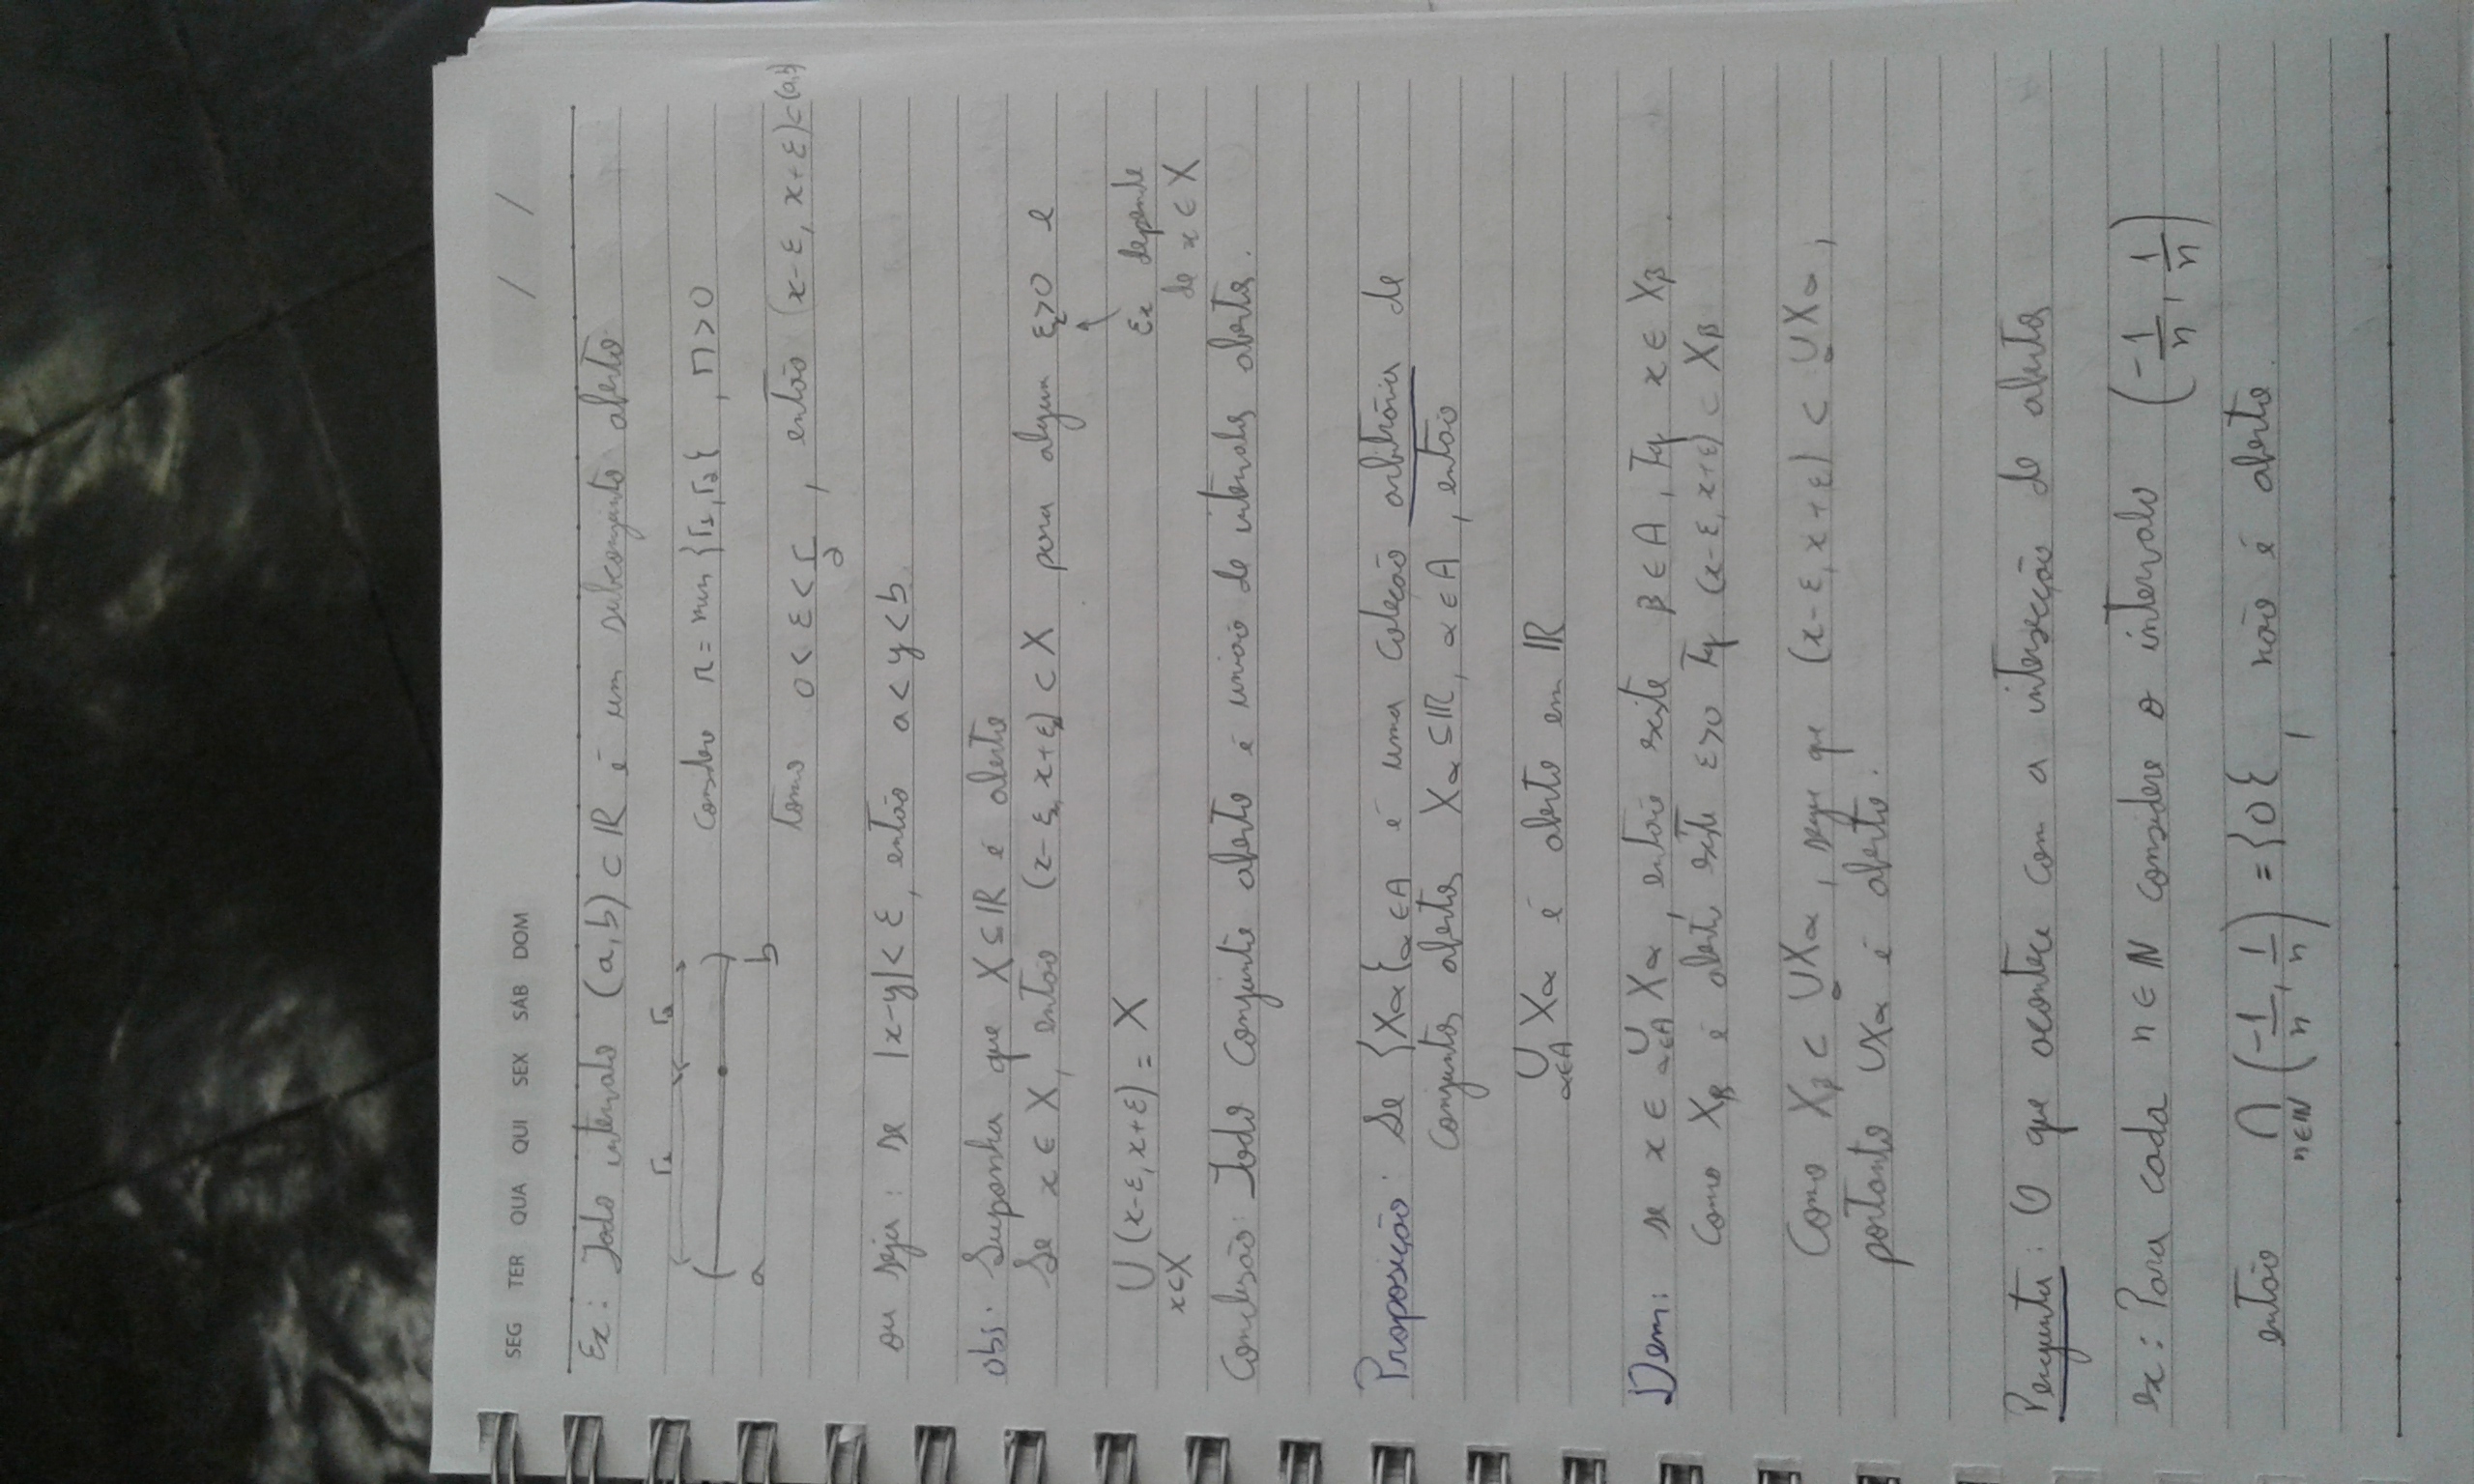 SEG TER QUA QUI SEX SÁB DOM / /
Ex: Todo intervalo (a,b) ⊂ ℝ é um subconjunto aberto
r₁ r₂
( ) considere r = min {r₁, r₂}, r > 0
a b
tomo 0 < ε < r/2, então (x-ε, x+ε) ⊂ (a,b)
ou seja: se |x-y| < ε, então a < y < b
obs: Suponha que X ⊆ ℝ é aberto
Se x ∈ X, então (x-εₓ, x+εₓ) ⊂ X para algum εₓ>0 e
⋃ (x-ε, x+ε) = X
x∈X
εₓ depende
de x ∈ X
Conclusão: Todo conjunto aberto é união de intervalos abertos.
Proposição: Se {Xα}α∈A é uma coleção arbitrária de
conjuntos abertos Xα ⊆ ℝ, α ∈ A, então
⋃ Xα é aberto em ℝ
α∈A
Dem: se x ∈ ⋃α∈A Xα, então existe β ∈ A, Tq x ∈ Xβ.
Como Xβ é aberto existe ε>0 Tq (x-ε, x+ε) ⊂ Xβ
Como Xβ ⊂ ⋃Xα, segue que (x-ε, x+ε) ⊂ ⋃Xα,
portanto ∪Xα é aberto.
Pergunta: O que acontece com a intersecção de abertos
ex: Para cada n ∈ ℕ considere o intervalo (-1/n, 1/n)
então ⋂n∈ℕ (-1/n, 1/n) = {0}, não é aberto.